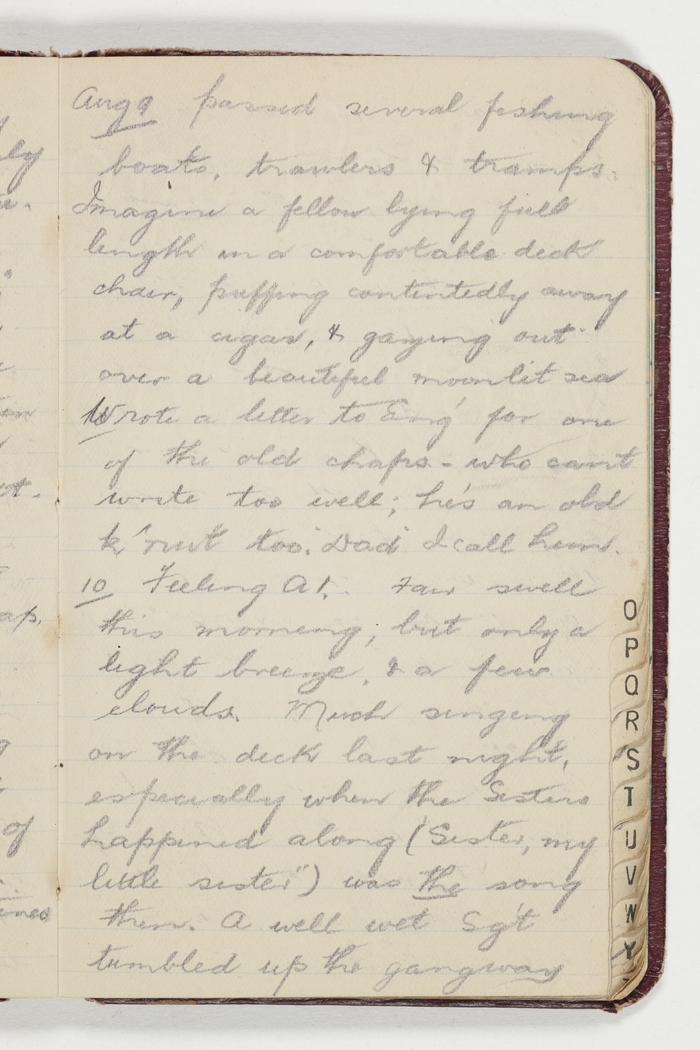 Aug 9 passed several fishing
boats, trawlers & tramps.
Imagine a fellow lying full
length in a comfortable deck
chair, puffing contentedly away
at a cigar, & gazing out
over a beautiful moonlit sea
Wrote a letter to Eng' for one
of the old chaps - who can't
write too well; he's an old
k'nut too. "Dad" I call him.
10 Feeling A1. Fair swell
this morning, but only a
light breeze, & a few
clouds. Much singing
on the deck last night,
especially when the Sisters
happened along (Sister, my
little sister") was the song
then. A well wet Sgt
tumbled up the gangway
O
P
Q
R
S
T
U
V
W
Y
ly
ap.
of